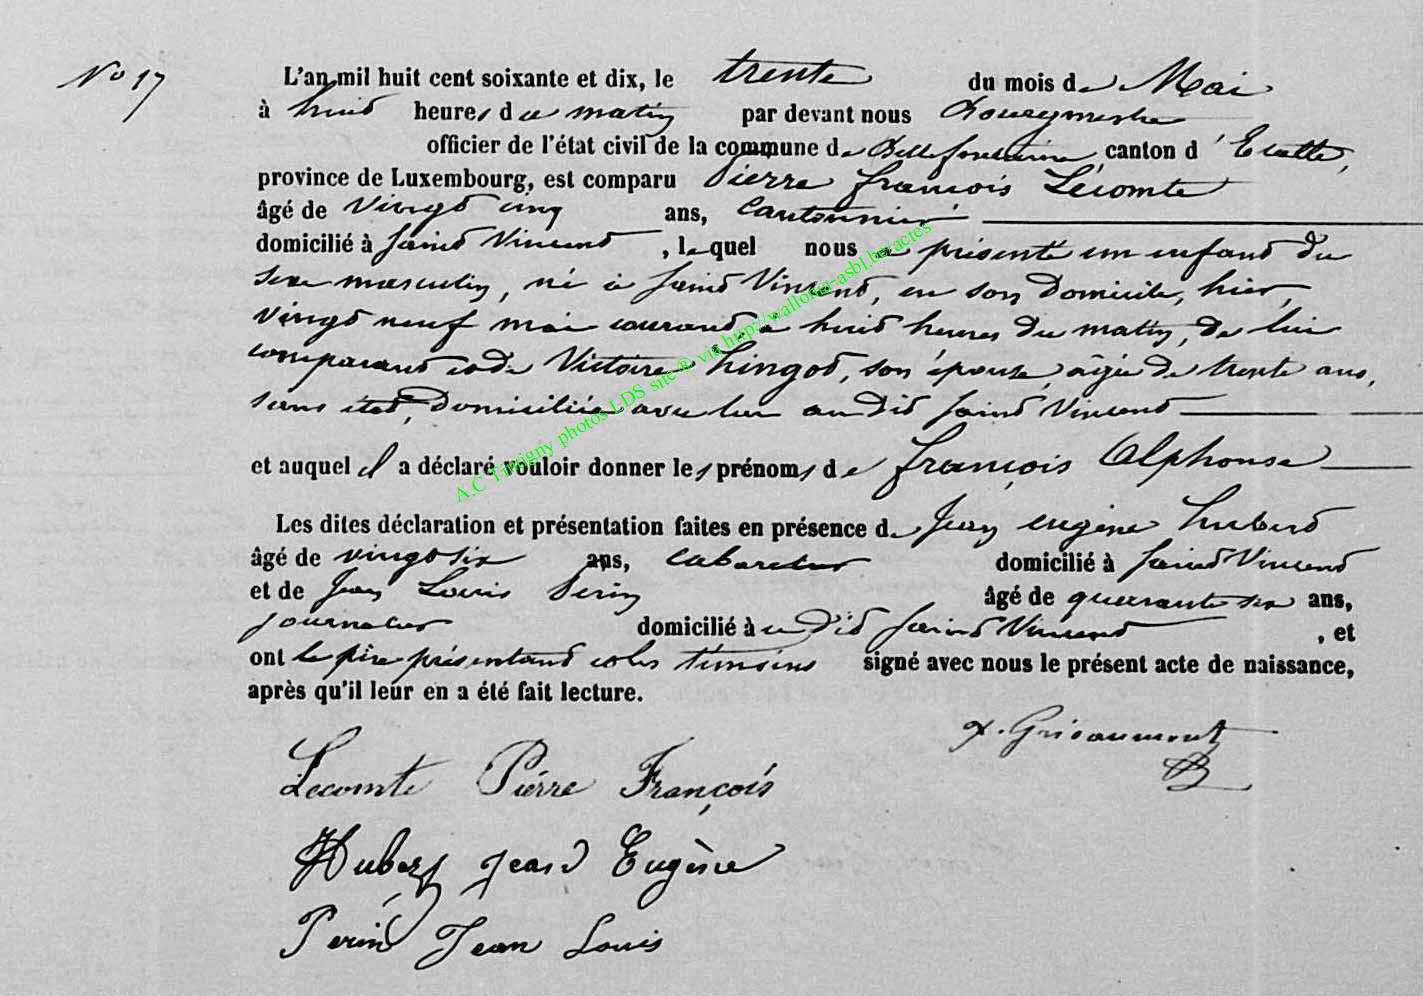 No 17
L'an mil huit cent soixante et dix, le trente du mois de Mai
à huit heures du matin par devant nous Bourgmestre
officier de l'état civil de la commune de Bellefontaine, canton d'Etalle,
province de Luxembourg, est comparu Pierre françois Lecomte
âgé de vingt cinq ans, Cantonnier
domicilié à Saint Vincent, lequel nous a présenté un enfant du
sexe masculin, né à Saint Vincent, en son Domicile, hier,
vingt neuf mai courant à huit heures du matin, de lui
comparant et de Victoire Hingot, son épouse, agée de trente ans,
sans état, Domiciliée avec lui au Dit Saint Vincent
et auquel il a déclaré vouloir donner les prénoms de françois Alphonse
Les dites déclaration et présentation faites en présence de Jean eugène hubert
âgé de vingt six ans, Cabaretier domicilié à Saint Vincent
et de Jean Louis Perin âgé de quarante six ans,
journalier domicilié à u Dit Saint Vincent, et
ont le père présentant et les témoins signé avec nous le présent acte de naissance,
après qu'il leur en a été fait lecture.
Lecomte Pierre François
Hubert Jean Eugène
Perin Jean Louis
A.C Tintigny photos LDS site® via http://wallonia-asbl.be/actes